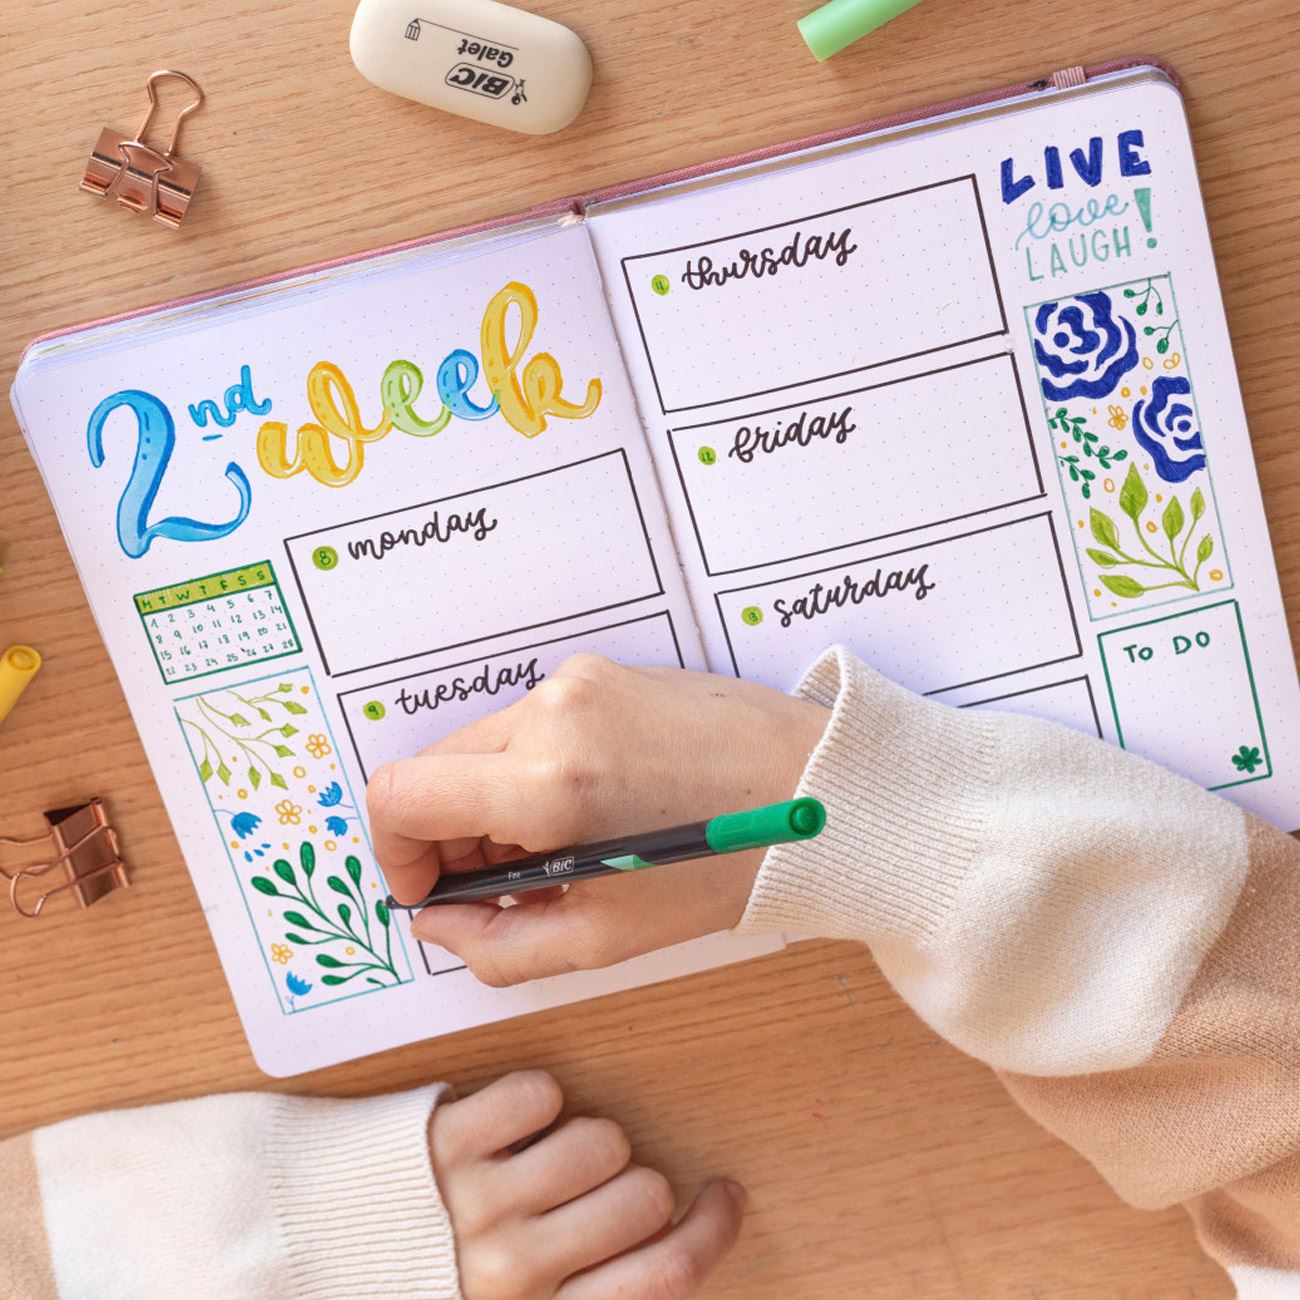 Galet
BIC
2nd week
M T W T F S S
1 2 3 4 5 6 7
8 9 10 11 12 13 14
15 16 17 18 19 20 21
22 23 24 25 26 27 28
8 monday
9 tuesday
11 thursday
12 friday
13 saturday
LIVE
love
LAUGH!
TO DO
Fine BIC